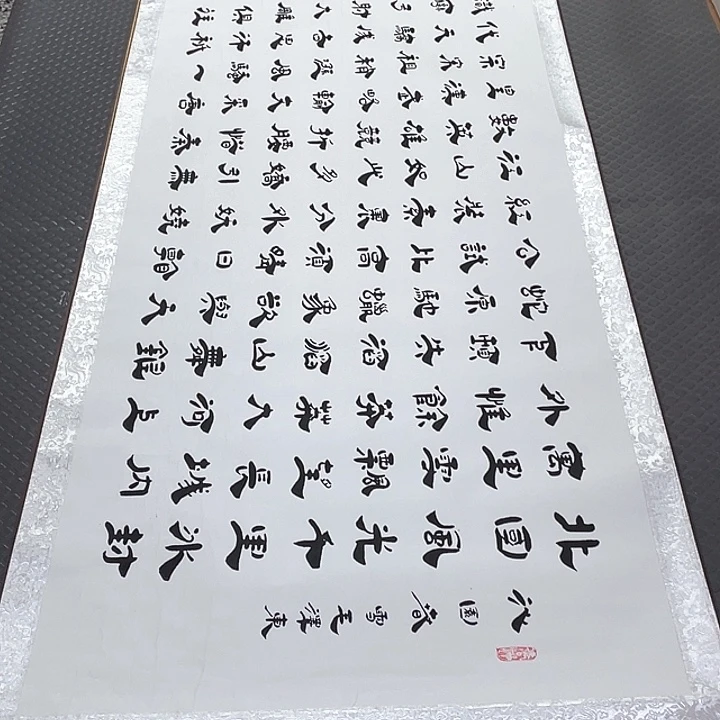 沁園春 雪 毛澤東
北國風光千里冰封
萬里雪飄望長城內
外惟餘莽莽大河上
下頓失滔滔山舞銀
蛇原馳蠟象欲與天
公試比高須晴日看
紅裝素裹分外妖嬈
江山如此多嬌引無
數英雄競折腰惜秦
皇漢武略輸文采唐
宗宋祖稍遜風騷一
代天驕成吉思汗祇
識彎弓射大雕俱往